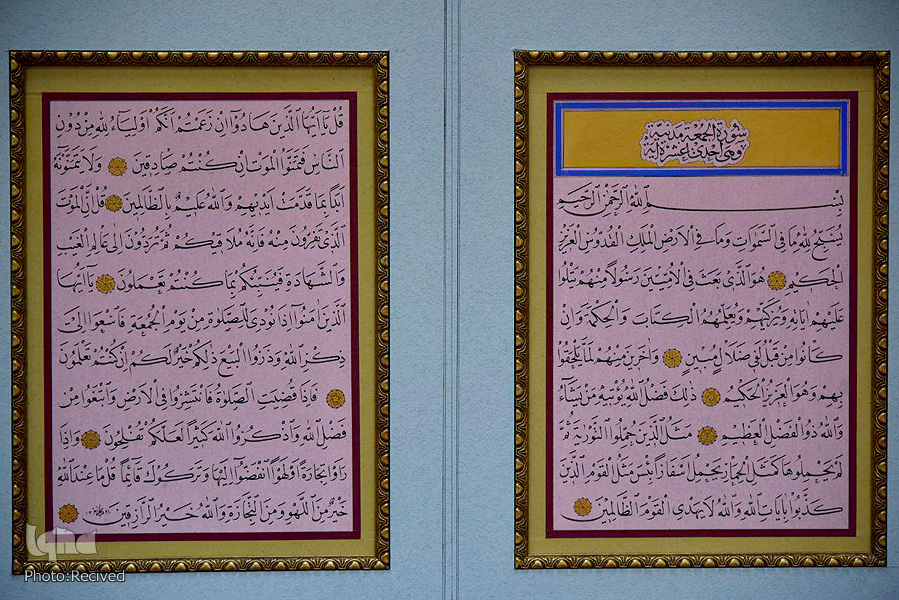 سُورَةُ الْجُمُعَةِ مَدَنِيَّةٌ
وَهِيَ اِحْدٰى عَشْرَةَ اٰيَةً
بِسْمِ اللّٰهِ الرَّحْمٰنِ الرَّحِيمِ
يُسَبِّحُ لِلّٰهِ مَا فِى السَّمٰوَاتِ وَمَا فِى الْاَرْضِ الْمَلِكِ الْقُدُّوسِ الْعَزِيزِ
الْحَكِيمِ هُوَ الَّذِى بَعَثَ فِى الْاُمِّيّ۪نَ رَسُولًا مِنْهُمْ يَتْلُوا
عَلَيْهِمْ اٰيَاتِهِ وَيُزَكِّيهِمْ وَيُعَلِّمُهُمُ الْكِتَابَ وَالْحِكْمَةَ وَاِنْ
كَانُوا مِنْ قَبْلُ لَفِى ضَلَالٍ مُبِينٍ وَاٰخَرِينَ مِنْهُمْ لَمَّا يَلْحَقُوا
بِهِمْ وَهُوَ الْعَزِيزُ الْحَكِيمُ ذٰلِكَ فَضْلُ اللّٰهِ يُؤْتِيهِ مَنْ يَشَاءُ
وَاللّٰهُ ذُو الْفَضْلِ الْعَظِيمِ مَثَلُ الَّذِينَ حُمِّلُوا التَّوْرٰيةَ ثُمَّ
لَمْ يَحْمِلُوهَا كَمَثَلِ الْحِمَارِ يَحْمِلُ اَسْفَارًا بِئْسَ مَثَلُ الْقَوْمِ الَّذِينَ
كَذَّبُوا بِاٰيَاتِ اللّٰهِ وَاللّٰهُ لَا يَهْدِى الْقَوْمَ الظَّالِمِينَ
قُلْ يَا اَيُّهَا الَّذِينَ هَادُوا اِنْ زَعَمْتُمْ اَنَّكُمْ اَوْلِيَاءُ لِلّٰهِ مِنْ دُونِ
النَّاسِ فَتَمَنَّوُا الْمَوْتَ اِنْ كُنْتُمْ صَادِقِينَ وَلَا يَتَمَنَّوْنَهُ
اَبَدًا بِمَا قَدَّمَتْ اَيْدِيهِمْ وَاللّٰهُ عَلِيمٌ بِالظَّالِمِينَ قُلْ اِنَّ الْمَوْتَ
الَّذِى تَفِرُّونَ مِنْهُ فَاِنَّهُ مُلَاقِيكُمْ ثُمَّ تُرَدُّونَ اِلٰى عَالِمِ الْغَيْبِ
وَالشَّهَادَةِ فَيُنَبِّئُكُمْ بِمَا كُنْتُمْ تَعْمَلُونَ يَا اَيُّهَا
الَّذِينَ اٰمَنُوا اِذَا نُودِىَ لِلصَّلٰوةِ مِنْ يَوْمِ الْجُمُعَةِ فَاسْعَوْا اِلٰى
ذِكْرِ اللّٰهِ وَذَرُوا الْبَيْعَ ذٰلِكُمْ خَيْرٌ لَكُمْ اِنْ كُنْتُمْ تَعْلَمُونَ
فَاِذَا قُضِيَتِ الصَّلٰوةُ فَانْتَشِرُوا فِى الْاَرْضِ وَابْتَغُوا مِنْ
فَضْلِ اللّٰهِ وَاذْكُرُوا اللّٰهَ كَثِيرًا لَعَلَّكُمْ تُفْلِحُونَ وَاِذَا
رَاَوْا تِجَارَةً اَوْ لَهْوًا انْفَضُّوا اِلَيْهَا وَتَرَكُوكَ قَائِمًا قُلْ مَا عِنْدَ اللّٰهِ
خَيْرٌ مِنَ اللَّهْوِ وَمِنَ التِّجَارَةِ وَاللّٰهُ خَيْرُ الرَّازِقِينَ
iqna
Photo:Recived